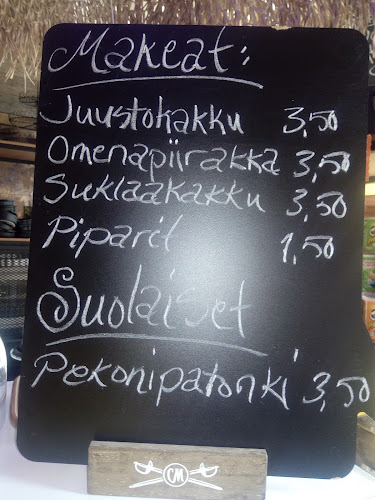 Makeat:
Juustokakku 3,50
Omenapiirakka 3,50
Suklaakakku 3,50
Piparit 1,50
Suolaiset
Pekonipatonki 3,50
CM